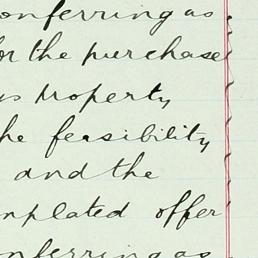 onferring as
or the purchase
us property
he feasibility
and the
nplated offer
onferring as